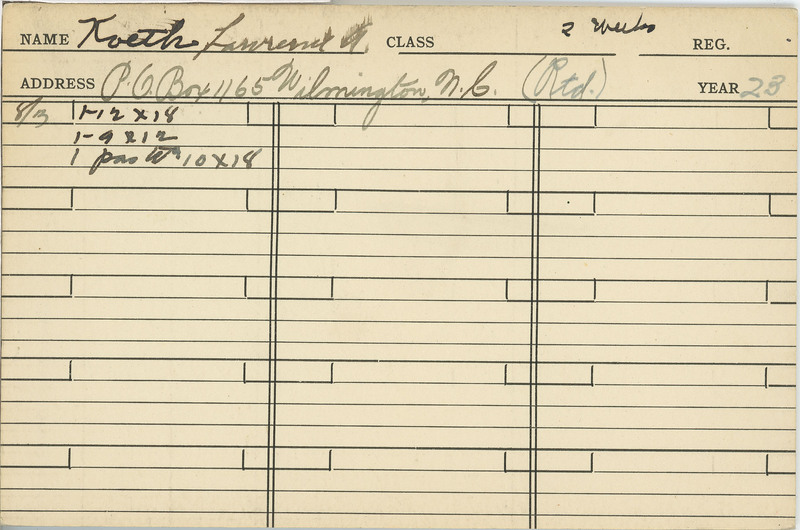 NAME Koeth Lawrence A. CLASS 2 Weeks REG.
ADDRESS P.O. Box 1165 Wilmington, N.C. (Rtd.) YEAR 23
8/3 1-12 x 18
1-9 x 12
1 10 x 18